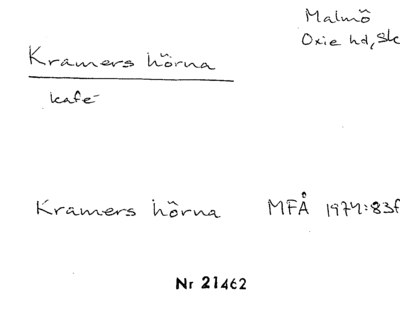 Malmö
Oxie hd, Sk
Kramers hörna
kafé
Kramers hörna MFÅ 1974:83f
Nr 21462